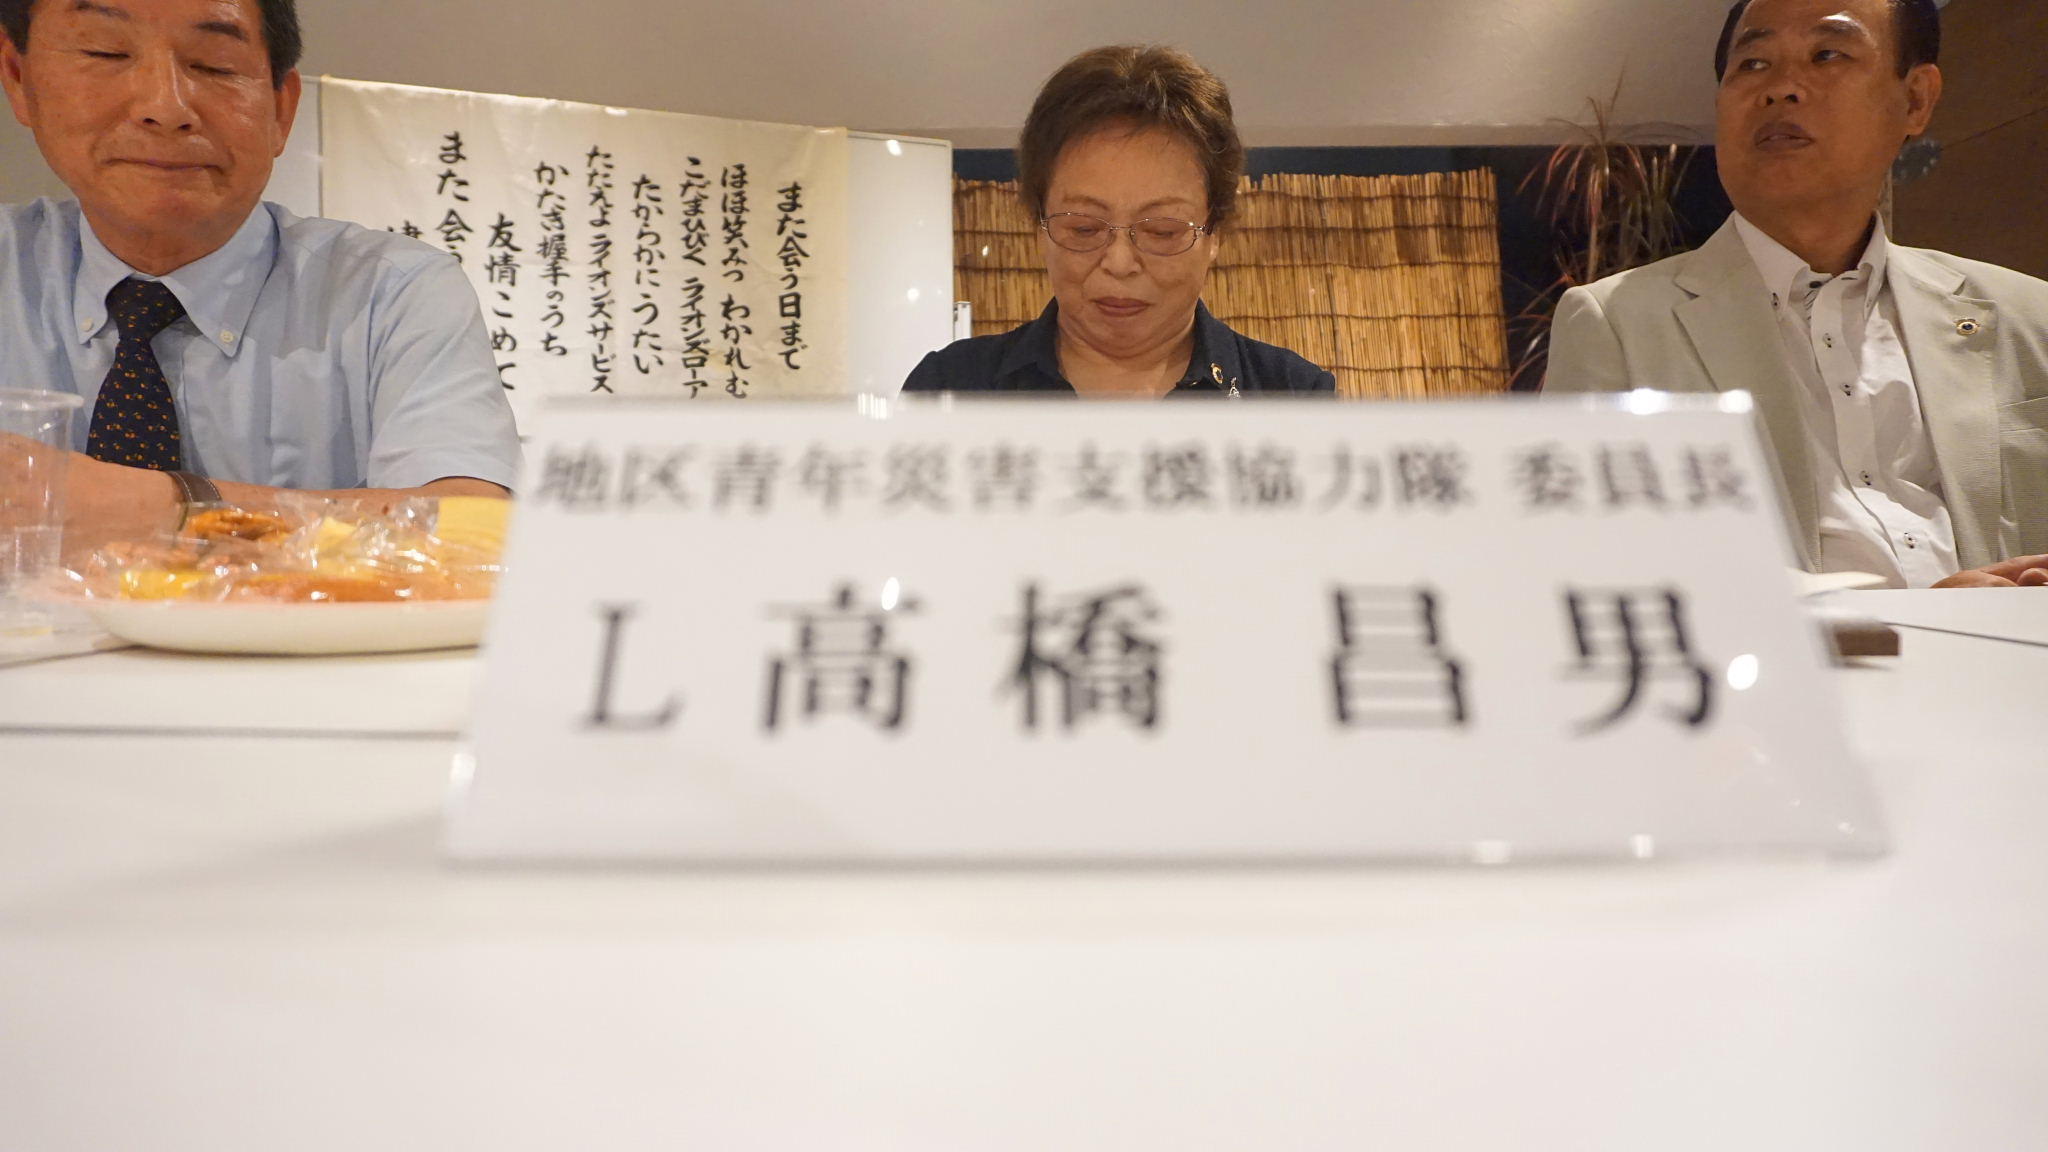 また会う日まで
ほほ笑みつ わかれむ
こだまひびく ライオンズローア
たからかにうたい
たたえよ ライオンズサービス
かたき握手のうち
友情こめて
また会う
地区青年災害支援協力隊 委員長
L 高橋 昌男